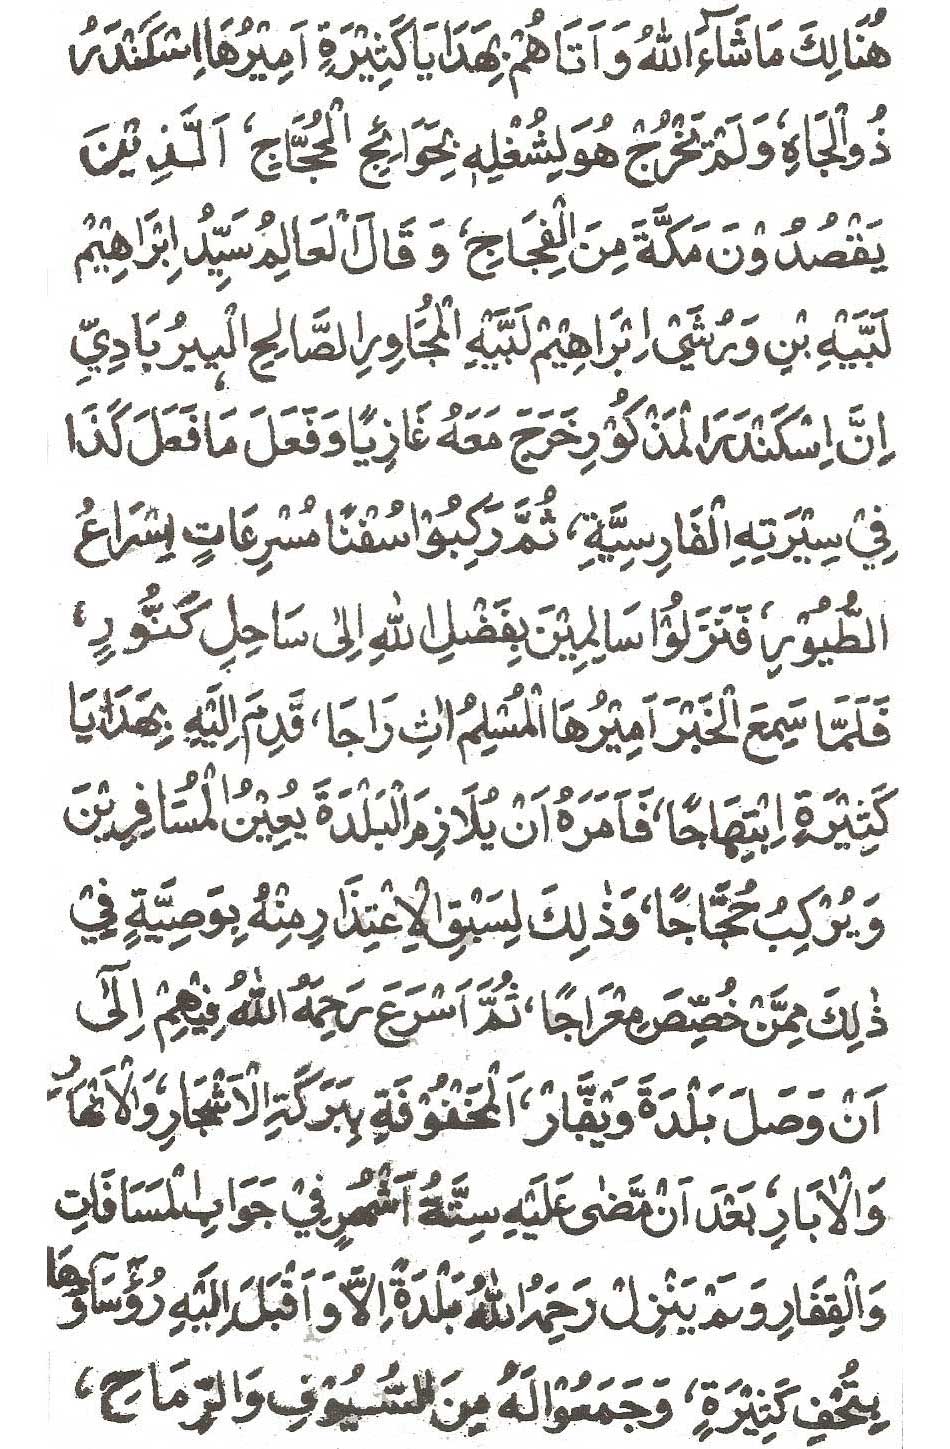 هُنَالِكَ مَاشَآءَ اللهُ وَاَتَاهُمْ بِهَدَايَا كَثِيْرَةٍ اَمِيْرُهَا اِسْكَنْدَرُ
ذُوالْجَاهِ، وَلَمْ يَخْرُجْ هُوَ لِشُغْلِهِ بِحَوَائِجِ الْحُجَّاجِ، اَلَّذِيْنَ
يَقْصُدُوْنَ مَكَّةَ مِنَ الْفِجَاجِ، وَقَالَ الْعَالِمُ سَيِّدُ اِبْرَاهِيْمُ
لَبَّيْهِ بْنِ وَرُشَيْ اِبْرَاهِيْمْ لَبَّيْهِ الْمُجَاوِرِ الصَّالِحِ الْبِيرُبَادِيِّ
اِنَّ اِسْكَنْدَرَ الْمَذْكُوْرِ خَرَجَ مَعَهُ غَازِيًا وَفَعَلَ مَا فَعَلَ كَذَا
فِيْ سِيْرَتِهِ الْفَارِسِيَّةِ، ثُمَّ رَكِبُوْا سُفُنًا مُسْرِعَاتٍ سِرَاعُ
الطُّيُوْرِ، فَنَزَلُوْا سَالِمِيْنَ بِفَضْلِ اللهِ اِلٰى سَاحِلِ كَنُّوْرٍ،
فَلَمَّا سَمِعَ الْخَبَرَ اَمِيْرُهَا الْمُسْلِمُ اتِ رَاجَا، قَدِمَ اِلَيْهِ بِهَدَايَا
كَثِيْرَةٍ اِبْتِهَاجًا، فَاَمَرَهُ اَنْ يُلَازِمَ الْبَلْدَةَ يُعِيْنُ الْمُسَافِرِيْنَ
وَيُرْكِبُ حُجَّاجًا، وَذٰلِكَ لِسَبْقِ الْاِعْتِذَارِ مِنْهُ بِوَصِيَّةٍ فِيْ
ذٰلِكَ مِمَّنْ خُصِّصَ مِعْرَاجًا، ثُمَّ اَسْرَعَ رَحِمَهُ اللهُ فِيْهِمْ اِلٰٓى
اَنْ وَصَلَ بَلْدَةَ وَيْقَّارْ، اَلْمَحْفُوْفَةِ بِبَرَكَةِ الْاَشْجَارِ، وَالْاَنْهَارِ
وَالْاٰبَارِ، بَعْدَ اَنْ مَّضٰى عَلَيْهِ سِتَّةُ اَشْهُرٍ فِيْ جَوَابِ الْمَسَافَاتِ
وَالْقِفَارِ وَلَمْ يَنْزِلْ رَحِمَهُ اللهُ بَلْدَةً اِلَّا وَاَقْبَلَ اِلَيْهِ رُؤَسَآؤُهَا
بِتُحَفٍ كَثِيْرَةٍ، وَجَمَعُوْا لَهُ مِنَ السُّيُوْفِ وَالرِّمَاحِ،